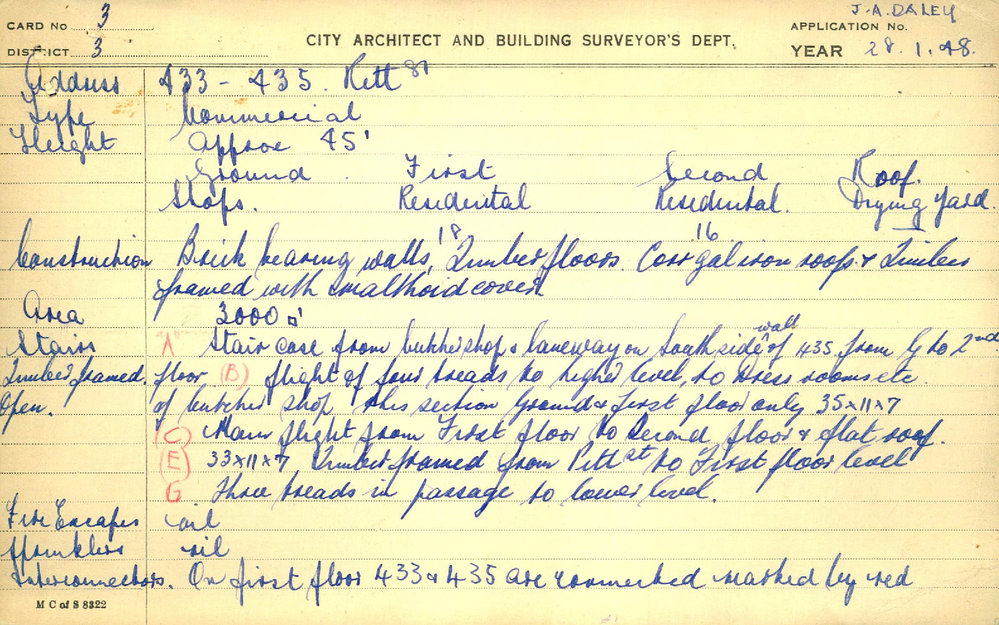 J.A. DALEY
CARD No 3
APPLICATION No.
DISTRICT 3
CITY ARCHITECT AND BUILDING SURVEYOR'S DEPT.
YEAR 28.1.48.
Address 433 - 435. Pitt St
Type Commercial
Height Approx 45'
Ground. First Second Roof.
Shops. Residental Residental. Drying yard.
18 16
Construction Brick bearing walls, Timber floors. Corr gal iron roofs & Timber
framed with malthoid cover
Area 3000 □'
Stairs A Stair case from butcher shop & laneway on South side wall of 435. from G to 2nd
Timber framed. floor (B) flight of four treads to higher level, to dress rooms etc
Open. of butcher shop this section Ground & First floor only 35x11x7
(C) Main flight from First floor to Second floor & flat roof.
(E) 33x11x7, Timber framed from Pitt St to First floor level
G Three treads in passage to lower level.
Fire Escapes nil
Sprinklers nil
Interconnectors. On first floor 433 & 435 are connected marked by red
M C of S 8322